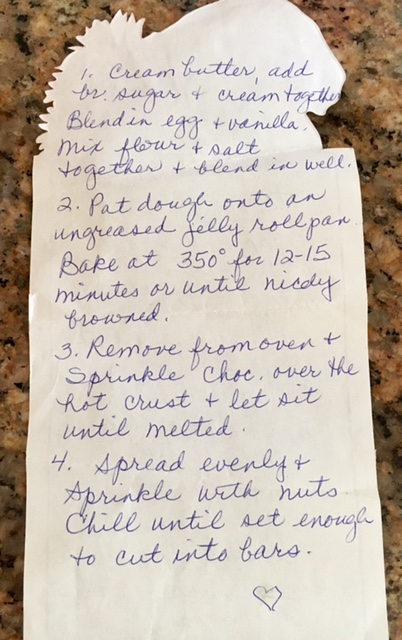 1. Cream butter, add
br. sugar + cream together
Blend in egg + vanilla.
Mix flour + salt
together + blend in well.
2. Pat dough onto an
ungreased jelly roll pan.
Bake at 350° for 12-15
minutes or until nicely
browned.
3. Remove from oven +
Sprinkle choc. over the
hot crust + let sit
until melted.
4. Spread evenly +
Sprinkle with nuts.
Chill until set enough
to cut into bars.
♡